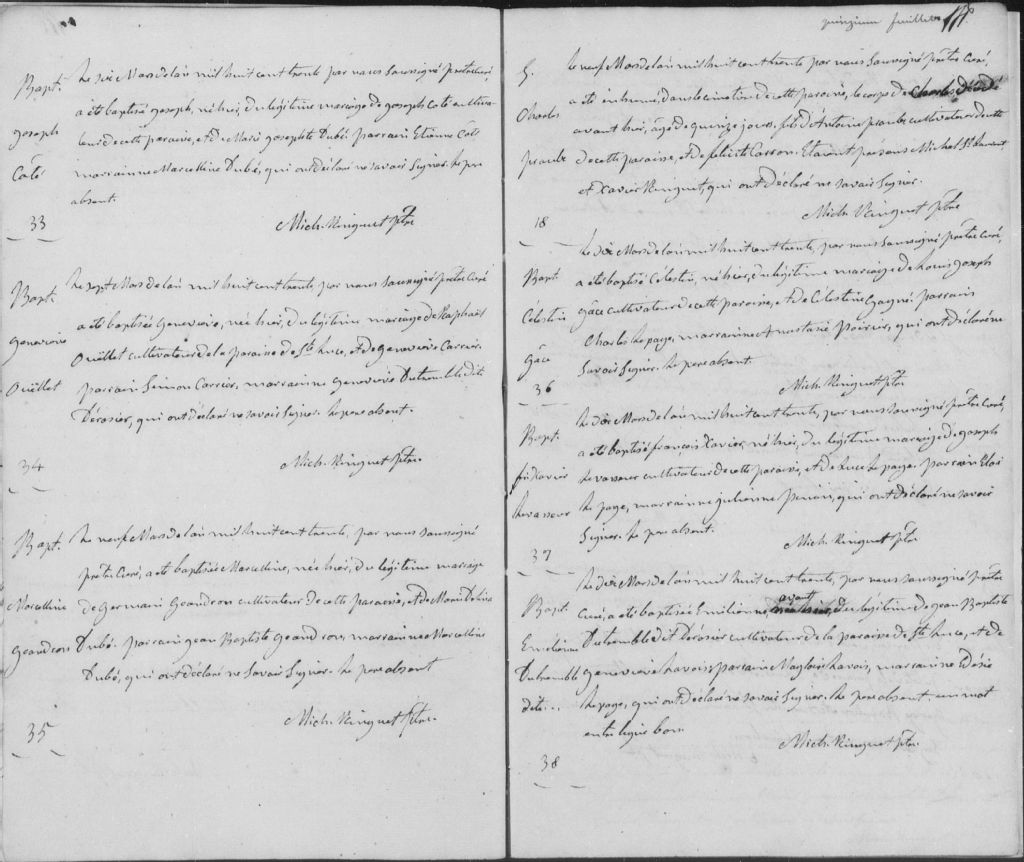 Bapt.
joseph
Côté
33
Le six Mars de l'an mil huit cent trente par nous soussigné prêtre Curé
a été baptisé joseph, né hier, du légitime mariage de joseph Coté cultiva-
teur de cette paroisse, et de Marie josephte Dubé. parrain Etienne Côté
marrainne Marcelline Dubé, qui ont déclaré ne savoir signer. Le pere
absent.
Mich. Ringuet ptre
Bapt.
Genevieve
Ouellet
34
Le sept Mars de l'an mil huit cent trente, par nous soussigné prêtre Curé
a été baptisée Genevieve, née hier, du légitime mariage de Raphaël
Ouëllet cultivateur de la paroisse de Ste Luce, et de Genevieve Carrier.
parrain Simon Carrier, marrainne Genevieve Dutremble dit
Dérosier, qui ont déclaré ne savoir signer. Le pere absent.
Mich. Ringuet ptre.
Bapt.
Marcelline
Geandron
35
Le neuf Mars de l'an mil huit cent trente, par nous soussigné
prêtre Curé, a été baptisée Marcelline, née hier, du légitime mariage
de Germain Geandron cultivateur de cette paroisse, et de Marie
Dubé. parrain jean Baptiste Geandron, marrainne Marcelline
Dubé, qui ont déclaré ne savoir signer. Le pere absent
Mich. Ringuet ptre.
quinzieme feuillet
S.
Charles
18
Le neuf Mars de l'an mil huit cent trente par nous soussigné prêtre Curé,
a été inhumé, dans le cimetiere de cette paroisse, le corps de Charles décédé
avant hier, âgé de quinze jours, fils d'Antoine cultivateur de cette
de cette paroisse, et de felicité Carron. Etaient présens Michel St Laurent
et Xavier Ringuet, qui ont déclaré ne savoir signer.
Mich. Ringuet ptre
Bapt.
Célestin
Gâce
36
Le dix Mars de l'an mil huit cent trente, par nous soussigné prêtre Curé,
a été baptisé Célestin, né hier, du légitime mariage de Louis joseph
Gâce cultivateur de cette paroisse, et de Célestine Gagné parrain
Charles Le page, marrainne Anastasie poirier, qui ont déclaré ne
savoir signer. Le pere absent.
Mich. Ringuet ptre
Bapt.
frs Xavier
Levasseur
37
Le dix Mars de l'an mil huit cent trente, par nous soussigné prêtre Curé,
a été baptisé françois Xavier, né hier, du légitime mariage de joseph
Le vasseur cultivateur de cette paroisse, et de Luce Le page. parrain Eloi
Le page, marrainne julienne, qui ont déclaré ne savoir
signer. Le pere absent.
Mich. Ringuet ptre
Bapt.
Emelienne
Dutremble
38
Le dix Mars de l'an mil huit cent trente, par nous soussigné prêtre
Curé, a été baptisée Emilienne, avant hier, du légitime de jean Baptiste
Dutremble dit Dérosier cultivateur de la paroisse de Ste Luce, et de
Genevieve Lavoix parrain Magloire Lavois, marrainne Désié
Le page, qui ont déclaré ne savoir signer. Le pere absent. un mot
entre ligne bon.
Mich. Ringuet ptre.